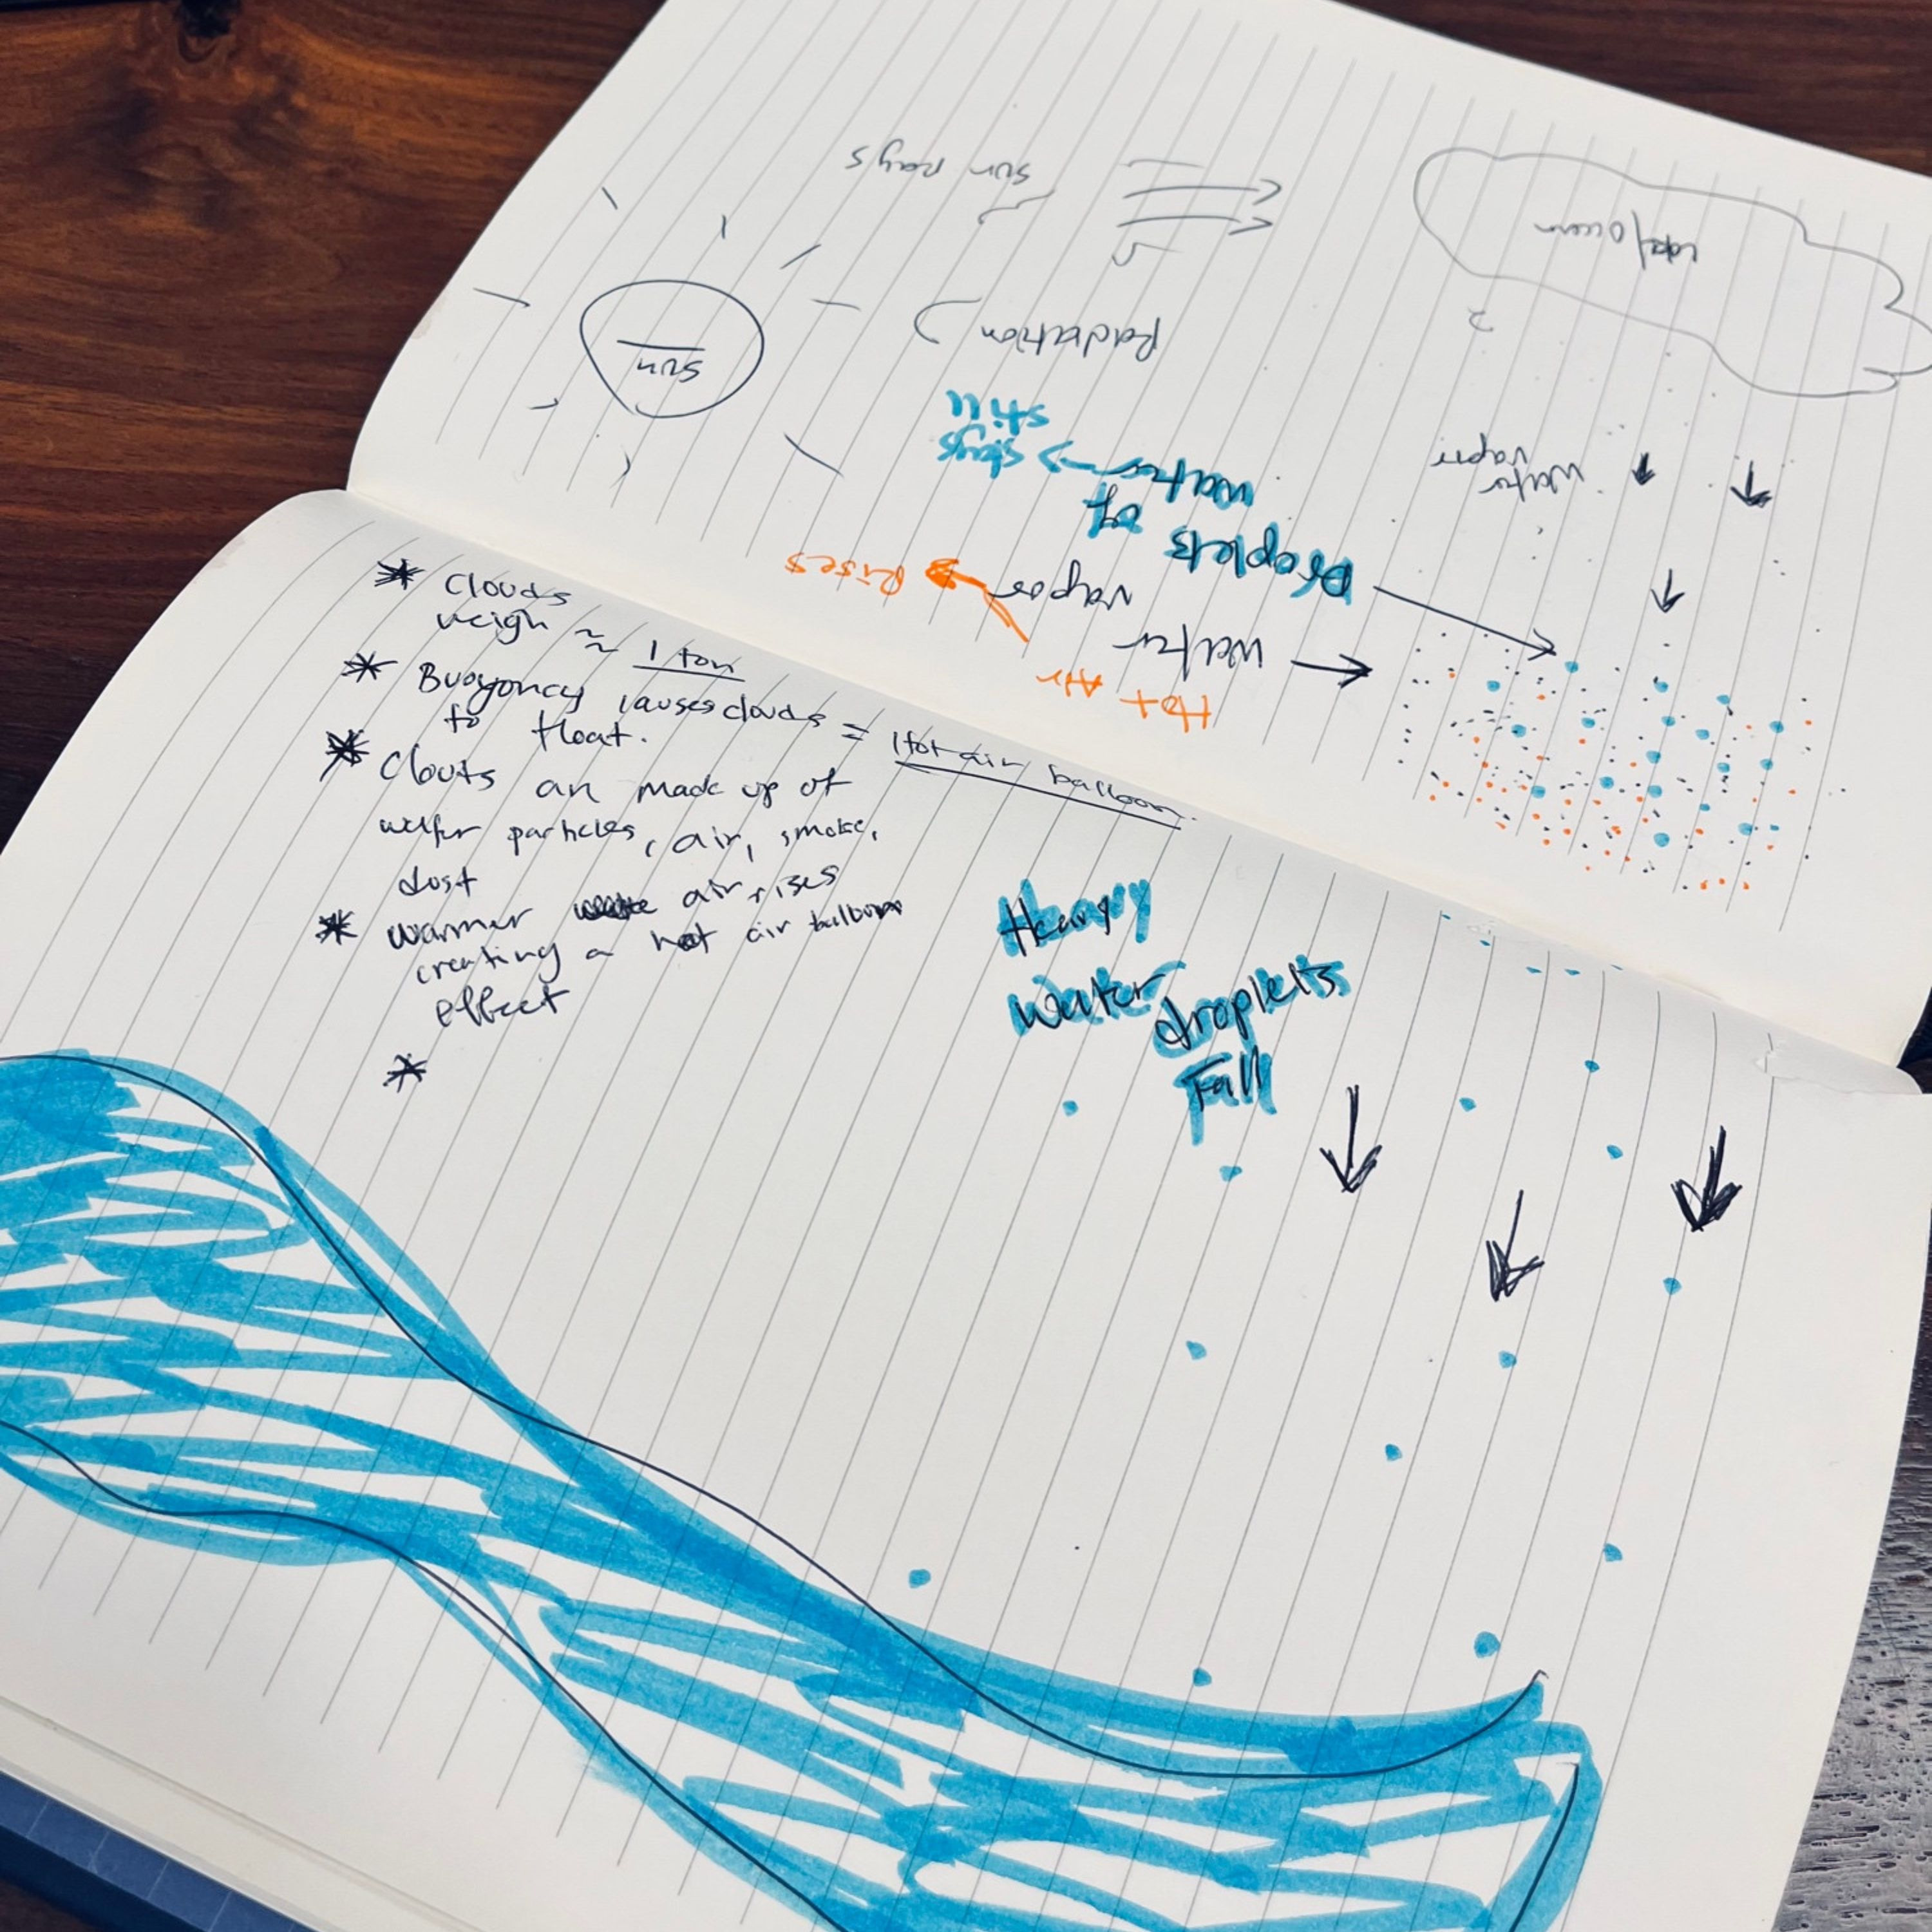 sun rays
Lake/Ocean
sun
Radiation
water
vapor
Droplets
of
water -> stays
still
water
vapor
Hot Air
Rises
* Clouds
weigh ≈ 1 ton
* Buoyoncy causes clouds = Hot air balloon.
to float.
* Clouds an made up of
water particles, air, smoke,
dust
* warmer air rises
creating a hot air balloon
effect
*
Heavy
Water droplets
Fall